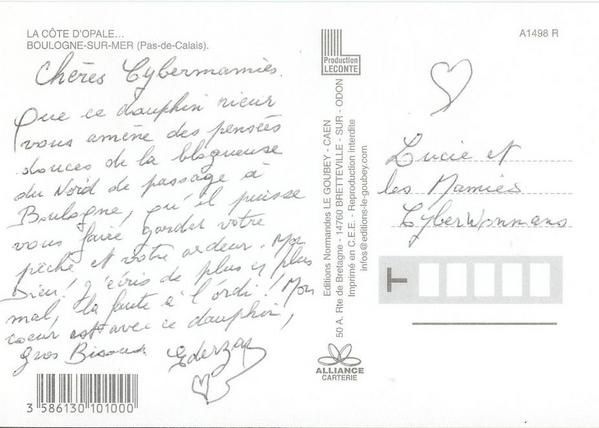 LA CÔTE D'OPALE...
BOULOGNE-SUR-MER (Pas-de-Calais).
Chères Cybermamies.
Que ce dauphin rieur
vous amène des pensées
douces de la blogueuse
du Nord de passage à
Boulogne, qu'il puisse
vous faire garder votre
pêche et votre ardeur. Mon
Dieu, j'écris de plus en plus
mal, la faute à l'ordi! Mon
coeur est avec ce dauphin,
Gros Bisous
3 586130 101000
Production
LECONTE
Editions Normandes LE GOUBEY - CAEN
50 A. Rte de Bretagne - 14760 BRETTEVILLE - SUR - ODON
Imprimé en C.E.E. - Reproduction interdite
info@editions-le-goubey.com
ALLIANCE
CARTERIE
A1498 R
Lucie et
les Mamies
CyberWomans
T